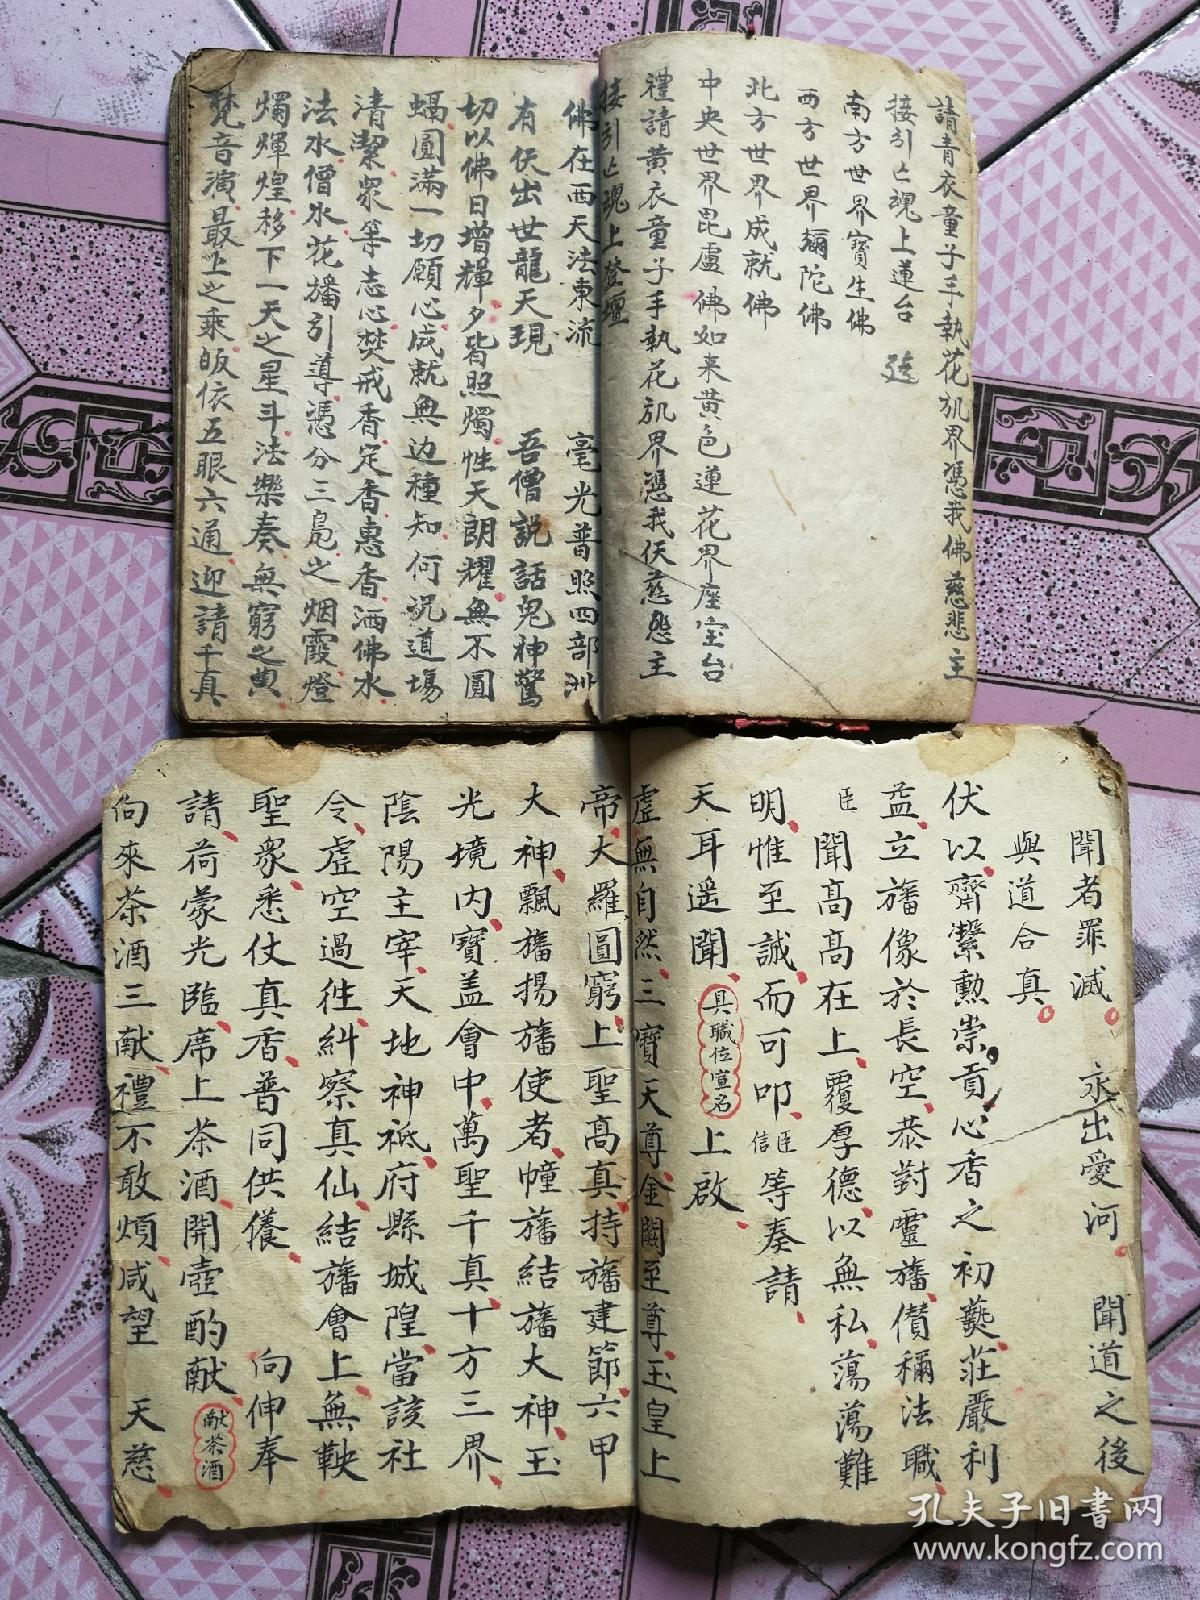 請青衣童子手執花旂界憑我佛慈悲主
接引亡魂上蓮台
南方世界寳生佛
西方世界彌陀佛
北方世界成就佛
中央世界毘盧佛如来黄色蓮花界座宝台
禮請黄衣童子手執花旂界憑我仸慈悲主
接引亡魂上登壇
佛在西天法東流 毫光普照四部洲
有仸出世龍天現 吾僧説話鬼神驚
切以佛日增輝夕皆照燭性天朗耀無不圓
圓滿一切願心成就無边種知何況道塲
清潔衆等志心焚戒香定香惠香洒佛水
法水僧水花旛引導憑分三島之烟霞燈
燭輝煌移下一天之星斗法樂奏無窮之典
梵音演最上之乘皈依五眼六通迎請千真
聞者罪滅 永出愛河 聞道之後
與道合真
伏以齋縈勲崇貢心香之初爇莊嚴利
益立旛像於長空恭對靈旛儹稱法職
臣聞高高在上覆厚德以無私蕩蕩難
明惟至誠而可叩臣信等奏請
天耳遥聞具職位宣名上啟
虚無自然三寳天尊金闕至尊玉皇上
帝大羅圓窮上聖高真持旛建節六甲
大神飄旛揚旛使者幢旛結旛大神玉
光境内寳盖會中萬聖千真十方三界
陰陽主宰天地神祇府縣城隍當該社
令虚空過徃糾察真仙結旛會上無鞅
聖衆悉仗真香普同供養 向伸奉
請荷蒙光臨席上茶酒開壺酌献献茶酒
向來茶酒三献禮不敢煩咸望 天慈
孔夫子旧書网
www.kongfz.com